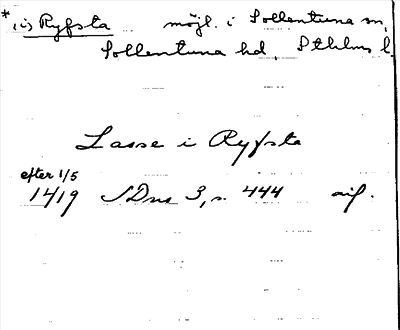 * (i) Ryfsta möjl. i Sollentuna sn,
Sollentuna hd, Sthlms l.
Lasse i Ryfsta
efter 1/5
1419 SDns 3, s. 444 avs.